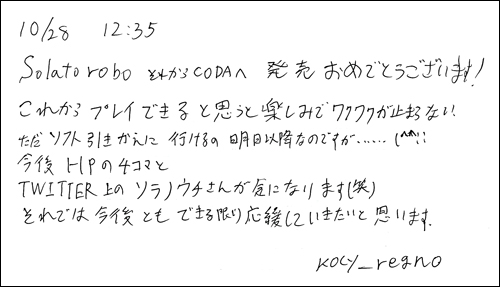 10/28 12:35
Solatorobo それからCODAへ 発売 おめでとうございます!
これから プレイできると思うと楽しみでワクワクが止まらない
ただ ソフト引きかえに 行けるの 明日以降なのですが……(^^;;
今後 HPの4コマと
TWITTER上の ソラノウチさんが気になります(笑)
それでは 今後とも できる限り応援していきたいと思います.
KOCY_regno